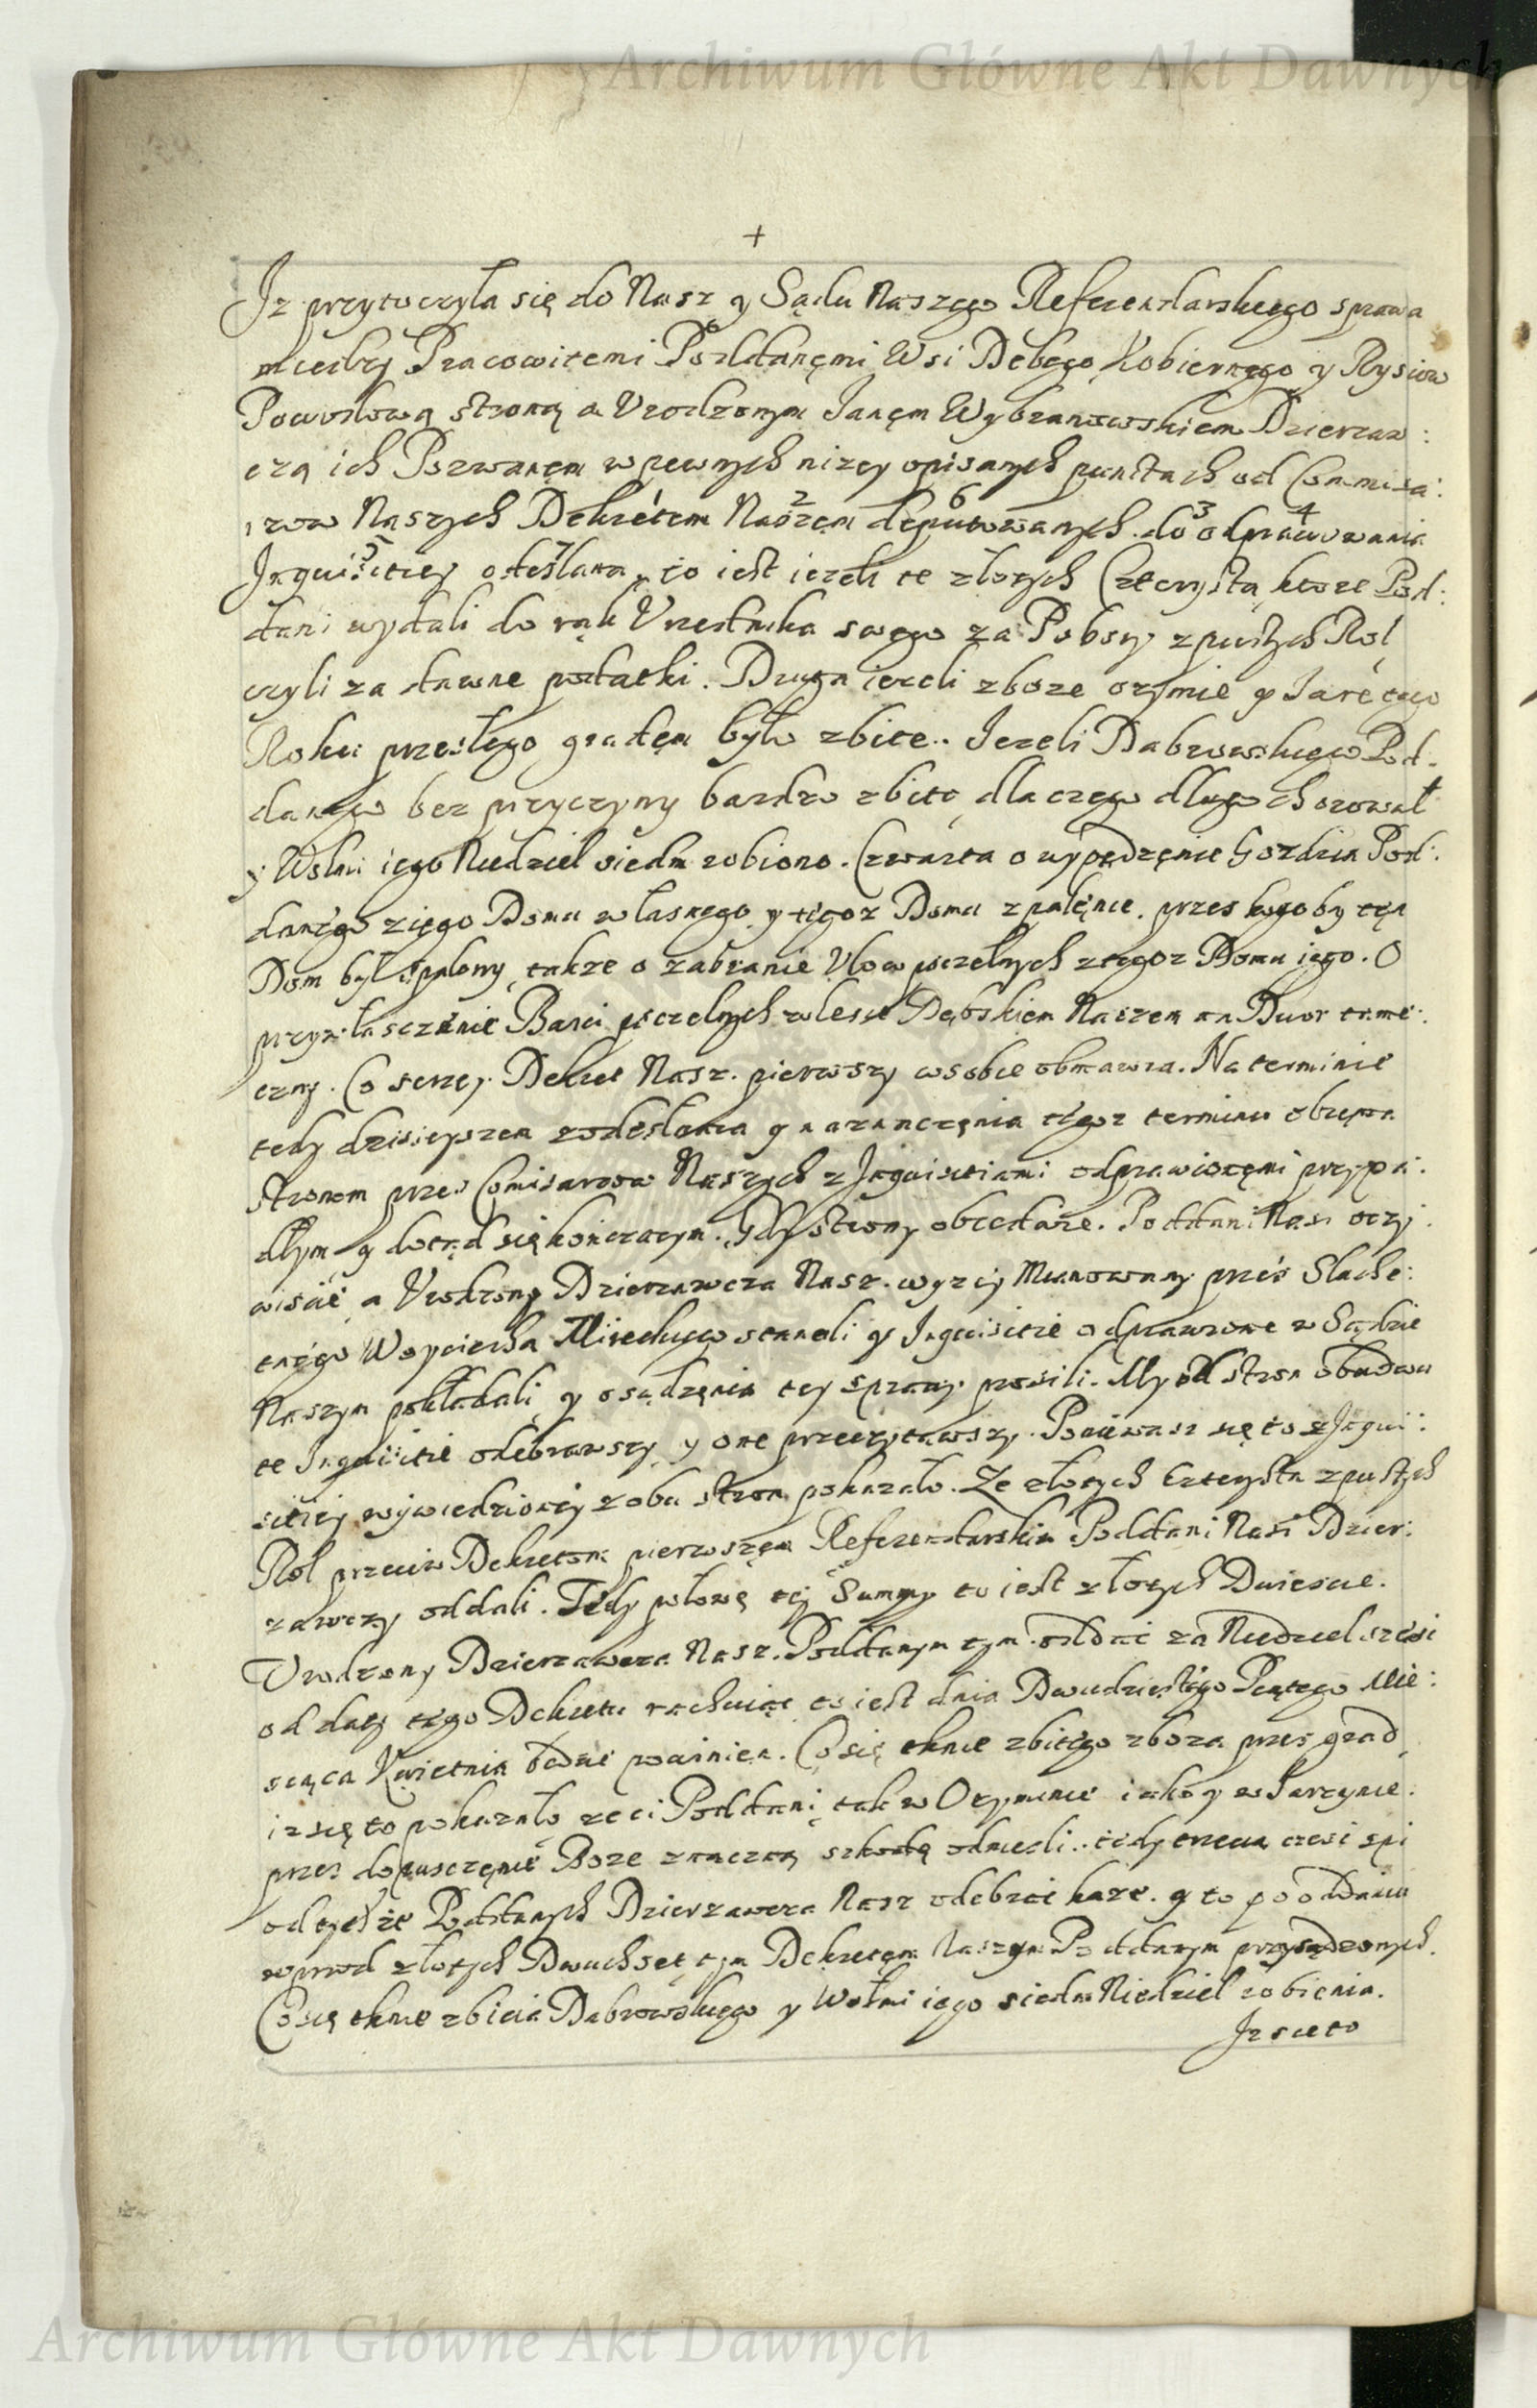 Archiwum Główne Akt Dawnych
+
Iz przytoczyła się do Nasz y Sądu Naszego Referendarskiego sprawa
miedzy Pracowitemi Poddanęmi Wsi Debego Kobiernego y Rysiow
Powodową stroną a Urodzonym Janęm Wybranowskiem Dzierzaw:
czą ich Pozwanęm w pewnych nizey opisanych punctach od Commisa:
rzow Naszych Dekretem Naszęm deputowanych do odprawowania
2 6 3 4
Inquisitiej odesłana, to iest iezeli te złotych Czterysta ktore Pod:
5 7
dani wydali do rąk Urzednika swego za Pobory z pustych Rol
czyli za dawne podatki. Druga iezeli zboze ozimie y Jare tego
Roku przeszłego gradęm było zbite. Jezeli Dabrowskiego Pod:
danego bez przyczyny bardzo zbito, dla czego długo chorował
y Wołmi iego Niedziel siedm robiono. Czwarta o wypędzęnie Gozdzia Pod:
danego z iego Domu własnego y tegoz Domu zpalęnie. przes kogo by tęn
Dom był spalony, takze o zabranie Ulow pszczelnych z tegoz Domu iego. O
przywłasczęnie Barci pszczelnych w lesie Dębskiem Naszem na Dwor tame:
czny. Co szerzej Dekret Nasz pierwszy w sobie obmawia. Na terminie
tedy dzisieyszem z odesłania y naznaczęnia tegoz terminu obiema
stronom przes Comisarzow Naszych z Inquisitiami odprawionęmi przypa:
dłym y dotąd się kończącym. Gdy strony obiedwie. Poddani Nasi oczy:
wiscie, a Urodzony Dzierzawcza Nasz wyzey Mianowany przes Slache:
tnego Woyciecha Mireckiego staneli y Inquisitie odprawione w Sądzie
Naszym pokładali y osądzęnia tey sprawy prosili. My od stron obudwu
te Inquisitie odebrawszy y one przeczytawszy. Poniewasz się to z Inqui:
sitiej wywiedzionej z obu stron pokazało. Ze złotych Czterysta z pustych
Rol przeciw Dekretom pierwszęm Referendarskim Poddani Nasi Dzier:
zawczy oddali. Tedy połowę tej Summy to iest złotych Dwiescie.
Urodzony Dzierzawcza Nasz Poddanym tym oddac za Niedziel szesc
od daty tego Dekretu rachuiąc to iest dnia Dwudziestego Piątego Mie:
siąca Kwietnia bedzie powinien. Co się tknie zbitego zboza przes grad
iz się to pokazało ze ci Poddani, tak w Oziminie iako y w Jarzynie.
przes dopusczęnie Boze znaczną szkodę odniesli. tedy trzecia czesc spi
od tychze Poddanych Dzierzawcza Nasz odebrac kaze. y to po oddaniu
wprzod złotych Dwuchset, tym Dekretęm Naszym Poddanym przysądzonych.
Co się tknie zbicia Dabrowskiego y Wołmi iego siedm Niedziel robienia.
Iz sie to
Archiwum Główne Akt Dawnych